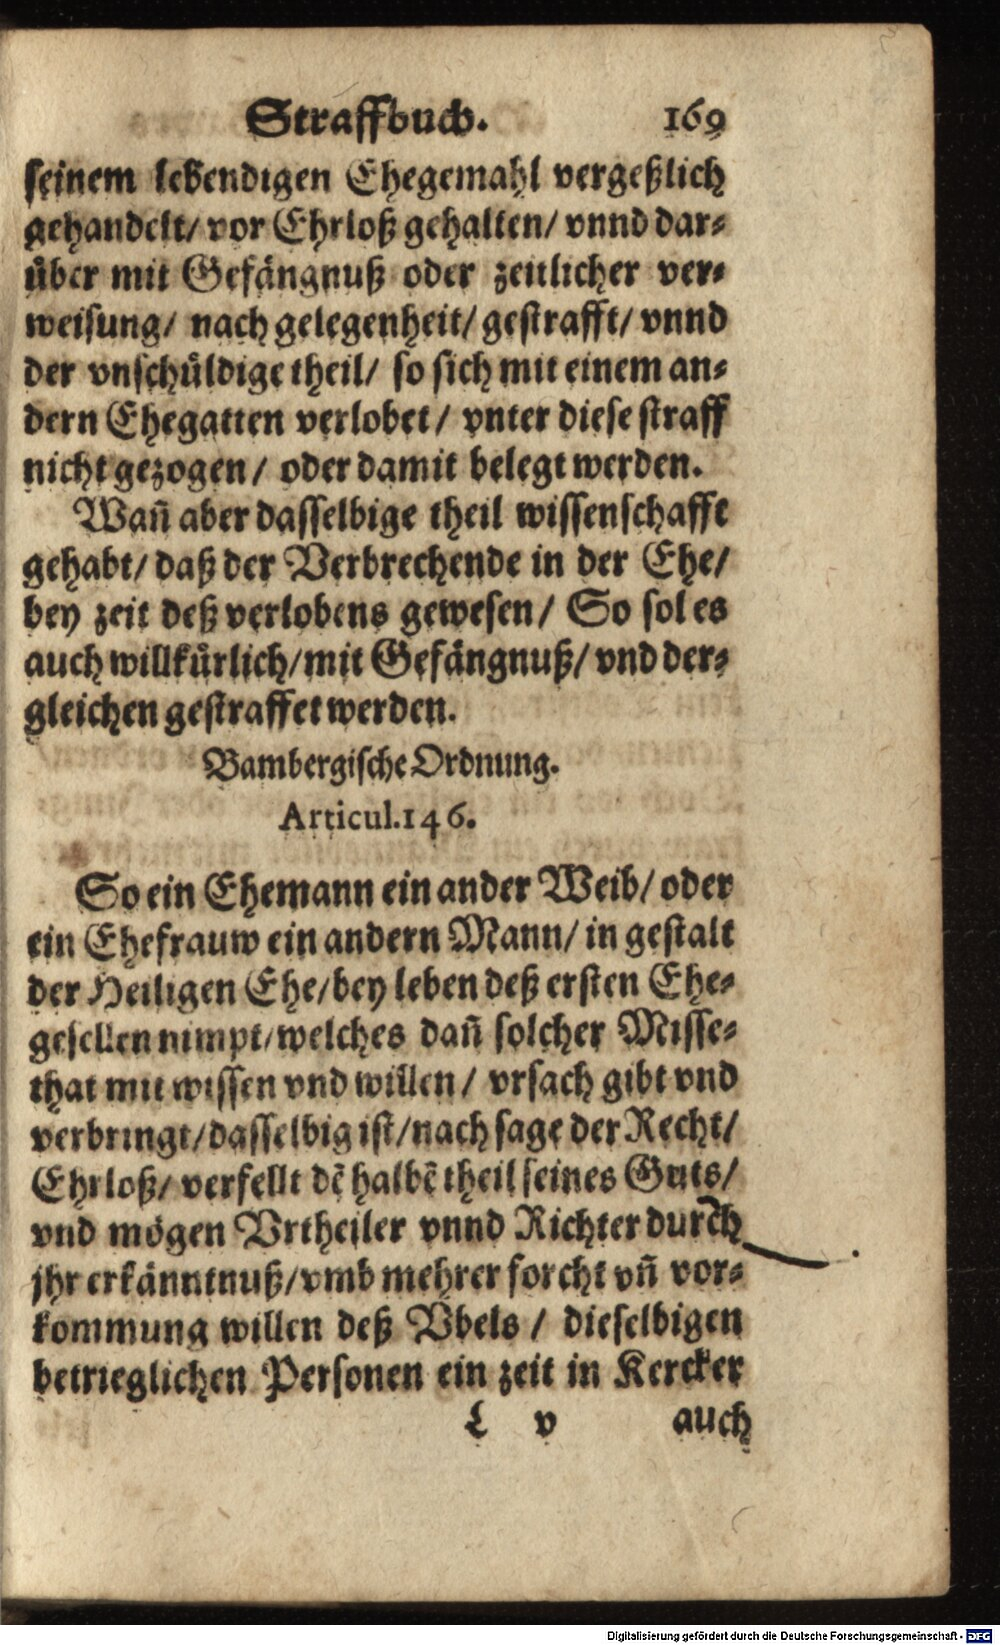 Straffbuch. 169
seinem lebendigen Ehegemahl vergeßlich
gehandelt/ vor Ehrloß gehalten/ vnnd dar⸗
uͤber mit Gefaͤngnuß oder zeitlicher ver⸗
weisung/ nach gelegenheit/ gestrafft/ vnnd
der vnschuͤldige theil/ so sich mit einem an⸗
dern Ehegatten verlobet/ vnter diese straff
nicht gezogen/ oder damit belegt werden.
Wañ aber dasselbige theil wissenschafft
gehabt/ daß der Verbrechende in der Ehe/
bey zeit deß verlobens gewesen/ So sol es
auch willkuͤrlich/ mit Gefaͤngnuß/ vnd der⸗
gleichen gestraffet werden.
Bambergische Ordnung.
Articul. 146.
So ein Ehemann ein ander Weib/ oder
ein Ehefrauw ein andern Mann/ in gestalt
der Heiligen Ehe/ bey leben deß ersten Ehe⸗
gesellen nimpt/ welches dañ solcher Misse⸗
that mit wissen vnd willen/ vrsach gibt vnd
verbringt/ dasselbig ist/ nach sage der Recht/
Ehrloß/ verfellt dẽ halbẽ theil seines Guts/
vnd moͤgen Vrtheiler vnnd Richter durch
jhr erkaͤnntnuß/ vmb mehrer forcht vñ vor⸗
kommung willen deß Vbels/ dieselbigen
betrieglichen Personen ein zeit in Kercker
L v auch
Digitalisierung gefördert durch die Deutsche Forschungsgemeinschaft - DFG